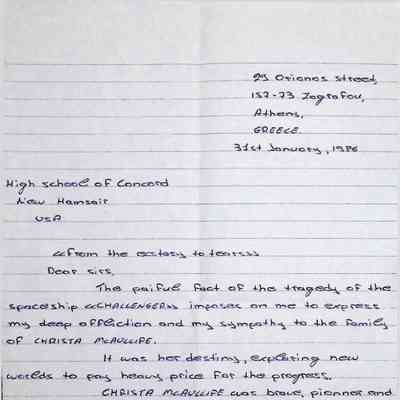 29 Orionos street,
157-73 Zografou,
Athens,
GREECE
31st January, 1986
High school of Concord
New Hamsair
USA
<<From the ecstasy to tears>>
Dear sirs,
The paiful fact of the tragedy of the
spaceship <<CHALLENGER>> imposes on me to express
my deep affliction and my sympathy to the family
of CHRISTA McAULLIFE.
It was her destiny, exploring new
worlds to pay heavy price for the progress.
CHRISTA McAULLIFE was brave, pionner and